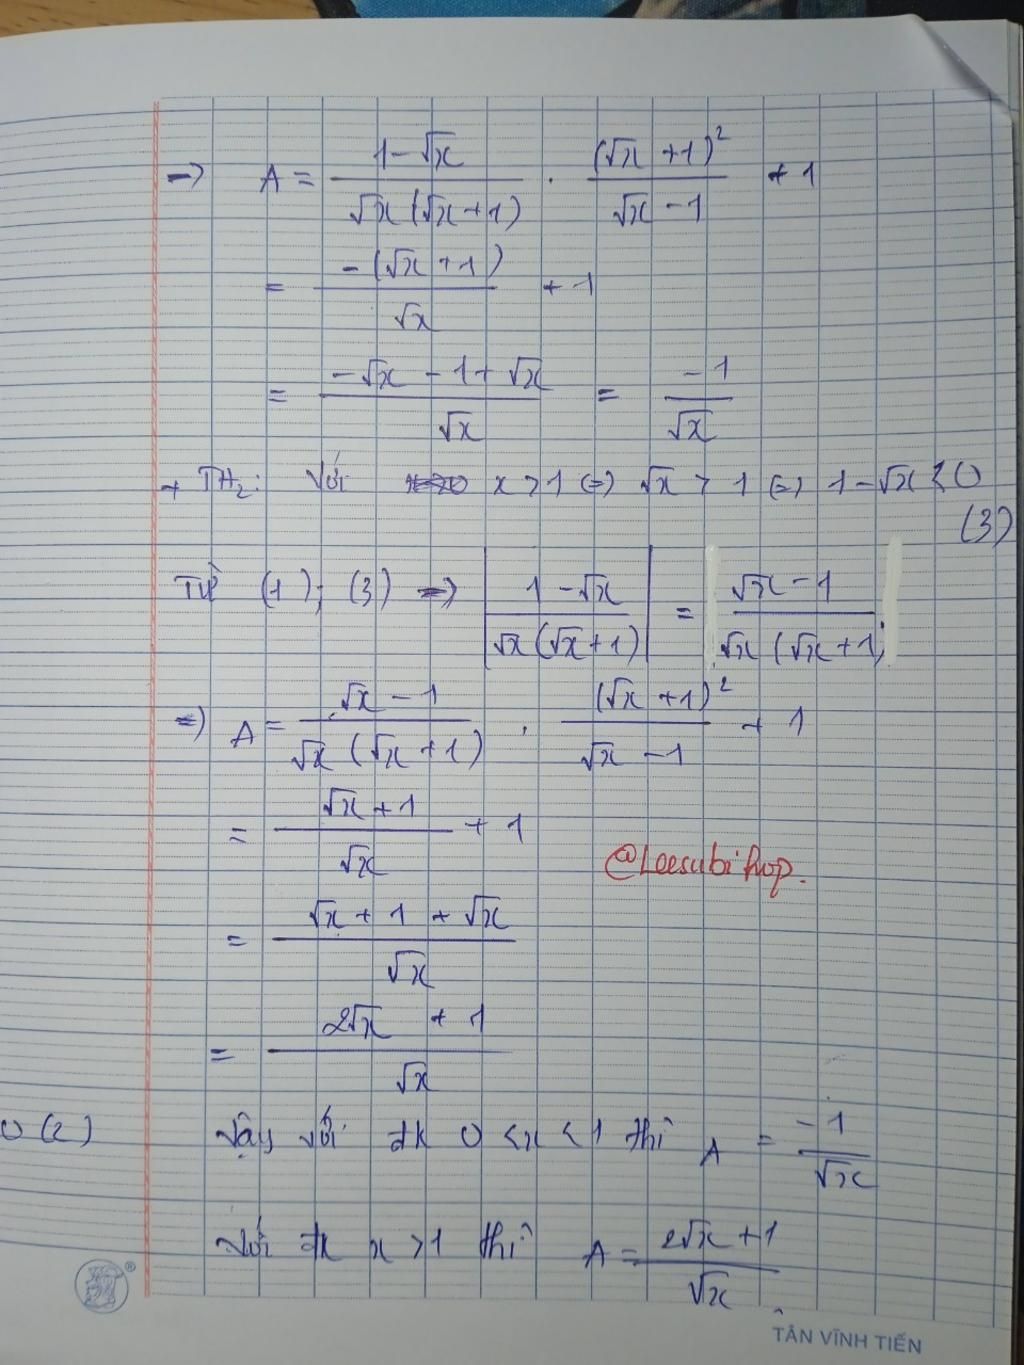 => A = \frac{1-\sqrt{x}}{\sqrt{x}(\sqrt{x}+1)} . \frac{(\sqrt{x}+1)^2}{\sqrt{x}-1} + 1
= \frac{-(\sqrt{x}+1)}{\sqrt{x}} + 1
= \frac{-\sqrt{x}-1+\sqrt{x}}{\sqrt{x}} = \frac{-1}{\sqrt{x}}
+ TH2: Với x > 1 <=> \sqrt{x} > 1 <=> 1-\sqrt{x} < 0
(3)
Từ (1); (3) => \left|\frac{1-\sqrt{x}}{\sqrt{x}(\sqrt{x}+1)}\right| = \frac{\sqrt{x}-1}{\sqrt{x}(\sqrt{x}+1)}
=> A = \frac{\sqrt{x}-1}{\sqrt{x}(\sqrt{x}+1)} . \frac{(\sqrt{x}+1)^2}{\sqrt{x}-1} + 1
= \frac{\sqrt{x}+1}{\sqrt{x}} + 1
@Leesubi
= \frac{\sqrt{x}+1+\sqrt{x}}{\sqrt{x}}
= \frac{2\sqrt{x}+1}{\sqrt{x}}
0 (2)
Vậy với đk 0 < x < 1 thì A = \frac{-1}{\sqrt{x}}
Với đk x > 1 thì A = \frac{2\sqrt{x}+1}{\sqrt{x}}.
®
TÂN VĨNH TIẾN